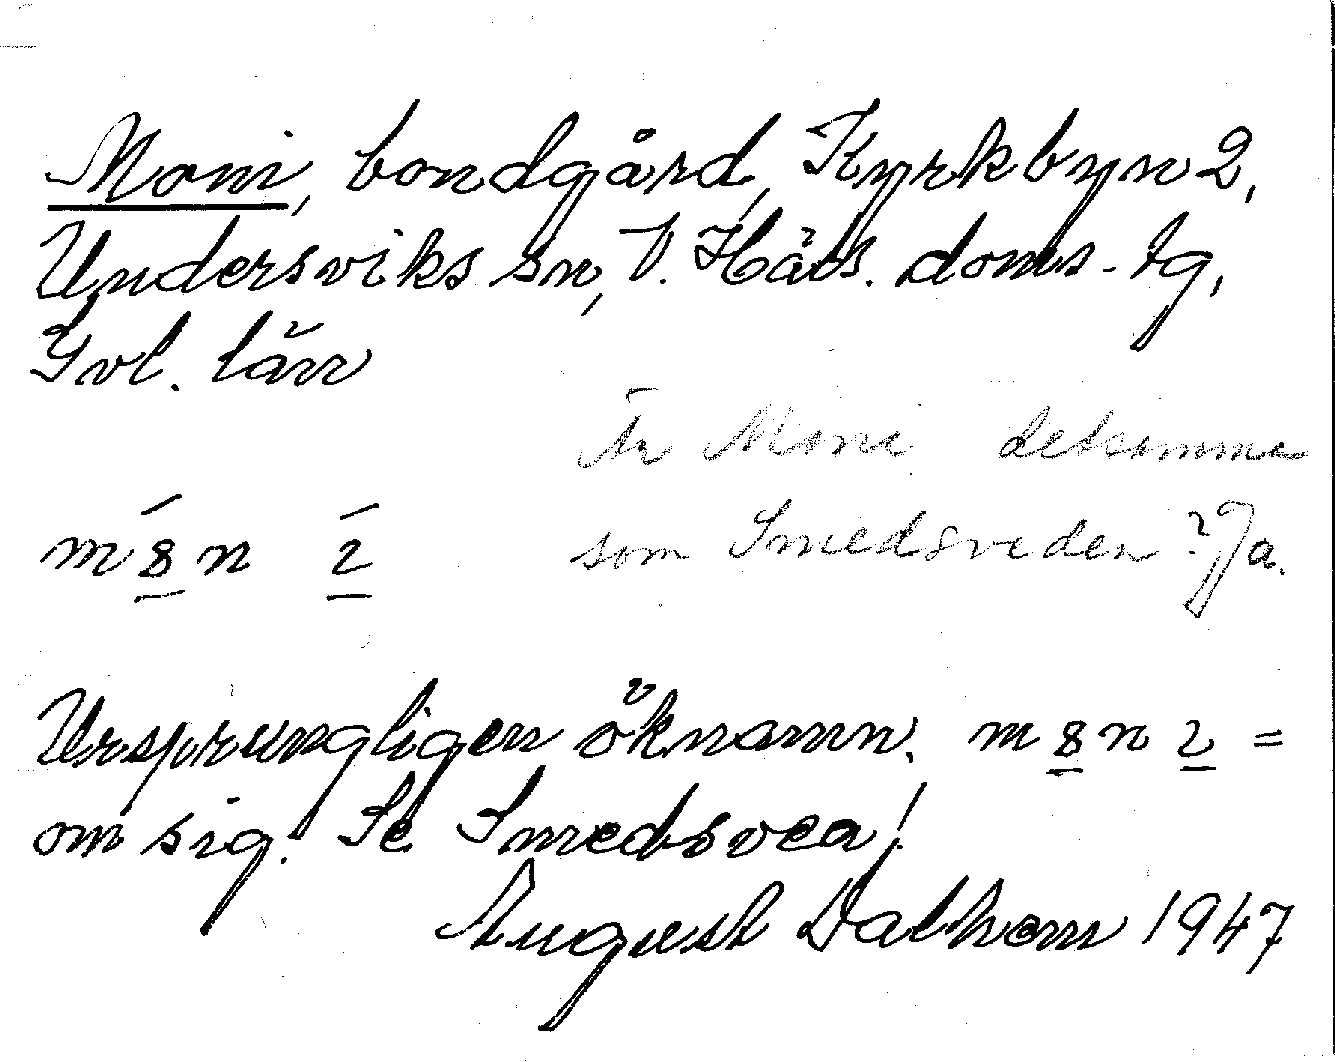 Moni, bondgård, Kyrkbyn 2,
Undersviks sn, V. Häls. doms-tg,
Gvl. län
Är Moni detsamma
m 8 n ɩ
som Smedsveden? Ja.
Ursprungligen öknamn. m 8 n ɩ =
om sig. Se Smedsvea!
August Dalhem 1947